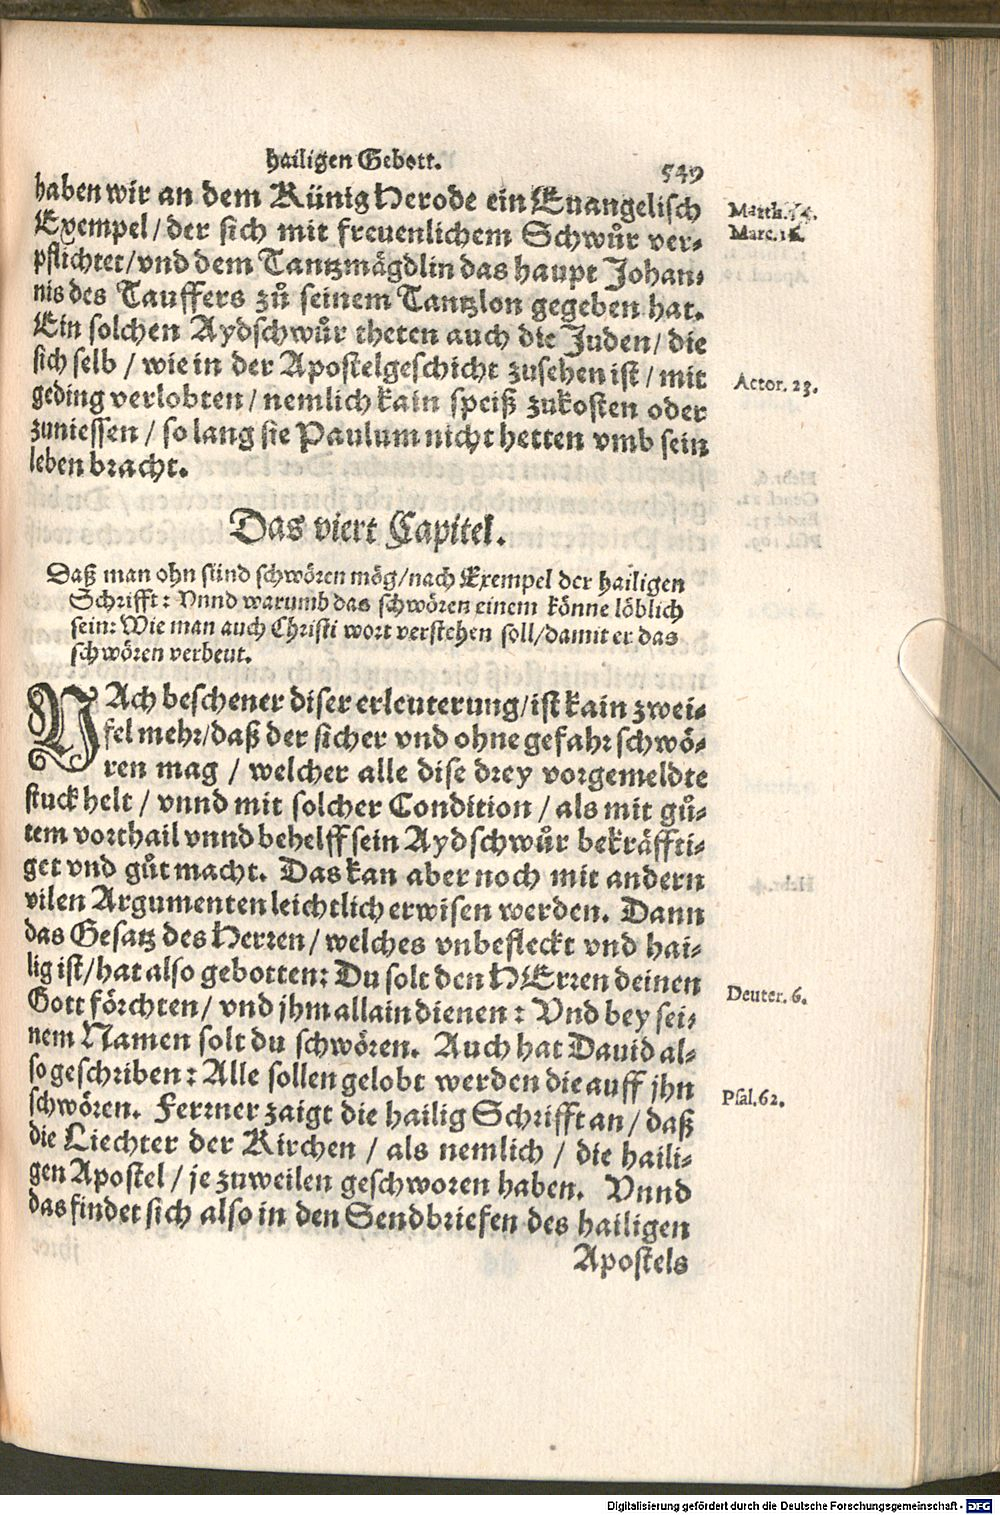 hailigen Gebott.
549
haben wir an dem Künig Herode ein Euangelisch
Exempel / der sich mit freuenlichem Schwůr ver-
pflichtet / vnd dem Tantzmägdlin das haupt Johan-
nis des Tauffers zů seinem Tantzlon gegeben hat.
Ein solchen Aydschwůr theten auch die Juden / die
sich selb / wie in der Apostelgeschicht zusehen ist / mit
geding verlobten / nemlich kain speiß zukosten oder
zuniessen / so lang sie Paulum nicht hetten vmb sein
leben bracht.
Matth. 14.
Marc.
Actor. 23.
Das viert Capitel.
Daß man ohn sünd schwören mög / nach Exempel der hailigen
Schrifft: Vnnd warumb das schwören einem könne löblich
sein: Wie man auch Christi wort verstehen soll / damit er das
schwören verbeut.
NAch beschener diser erleuterung / ist kain zwei-
fel mehr / daß der sicher vnd ohne gefahr schwö-
ren mag / welcher alle dise drey vorgemeldte
stuck helt / vnnd mit solcher Condition / als mit gů-
tem vorthail vnnd behelff sein Aydschwůr bekräffti-
get vnd gůt macht. Das kan aber noch mit andern
vilen Argumenten leichtlich erwisen werden. Dann
das Gesatz des Herren / welches vnbefleckt vnd hai-
lig ist / hat also gebotten: Du solt den HErren deinen
Gott förchten / vnd jhm allain dienen: Vnd bey sei-
nem Namen solt du schwören. Auch hat Dauid al-
so geschriben: Alle sollen gelobt werden die auff jhn
schwören. Ferrner zaigt die hailig Schrifft an / daß
die Liechter der Kirchen / als nemlich / die haili-
gen Apostel / je zuweilen geschworen haben. Vnnd
das findet sich also in den Sendbriefen des hailigen
Apostels
Deuter. 6.
Psal. 62.
Digitalisierung gefördert durch die Deutsche Forschungsgemeinschaft - DFG